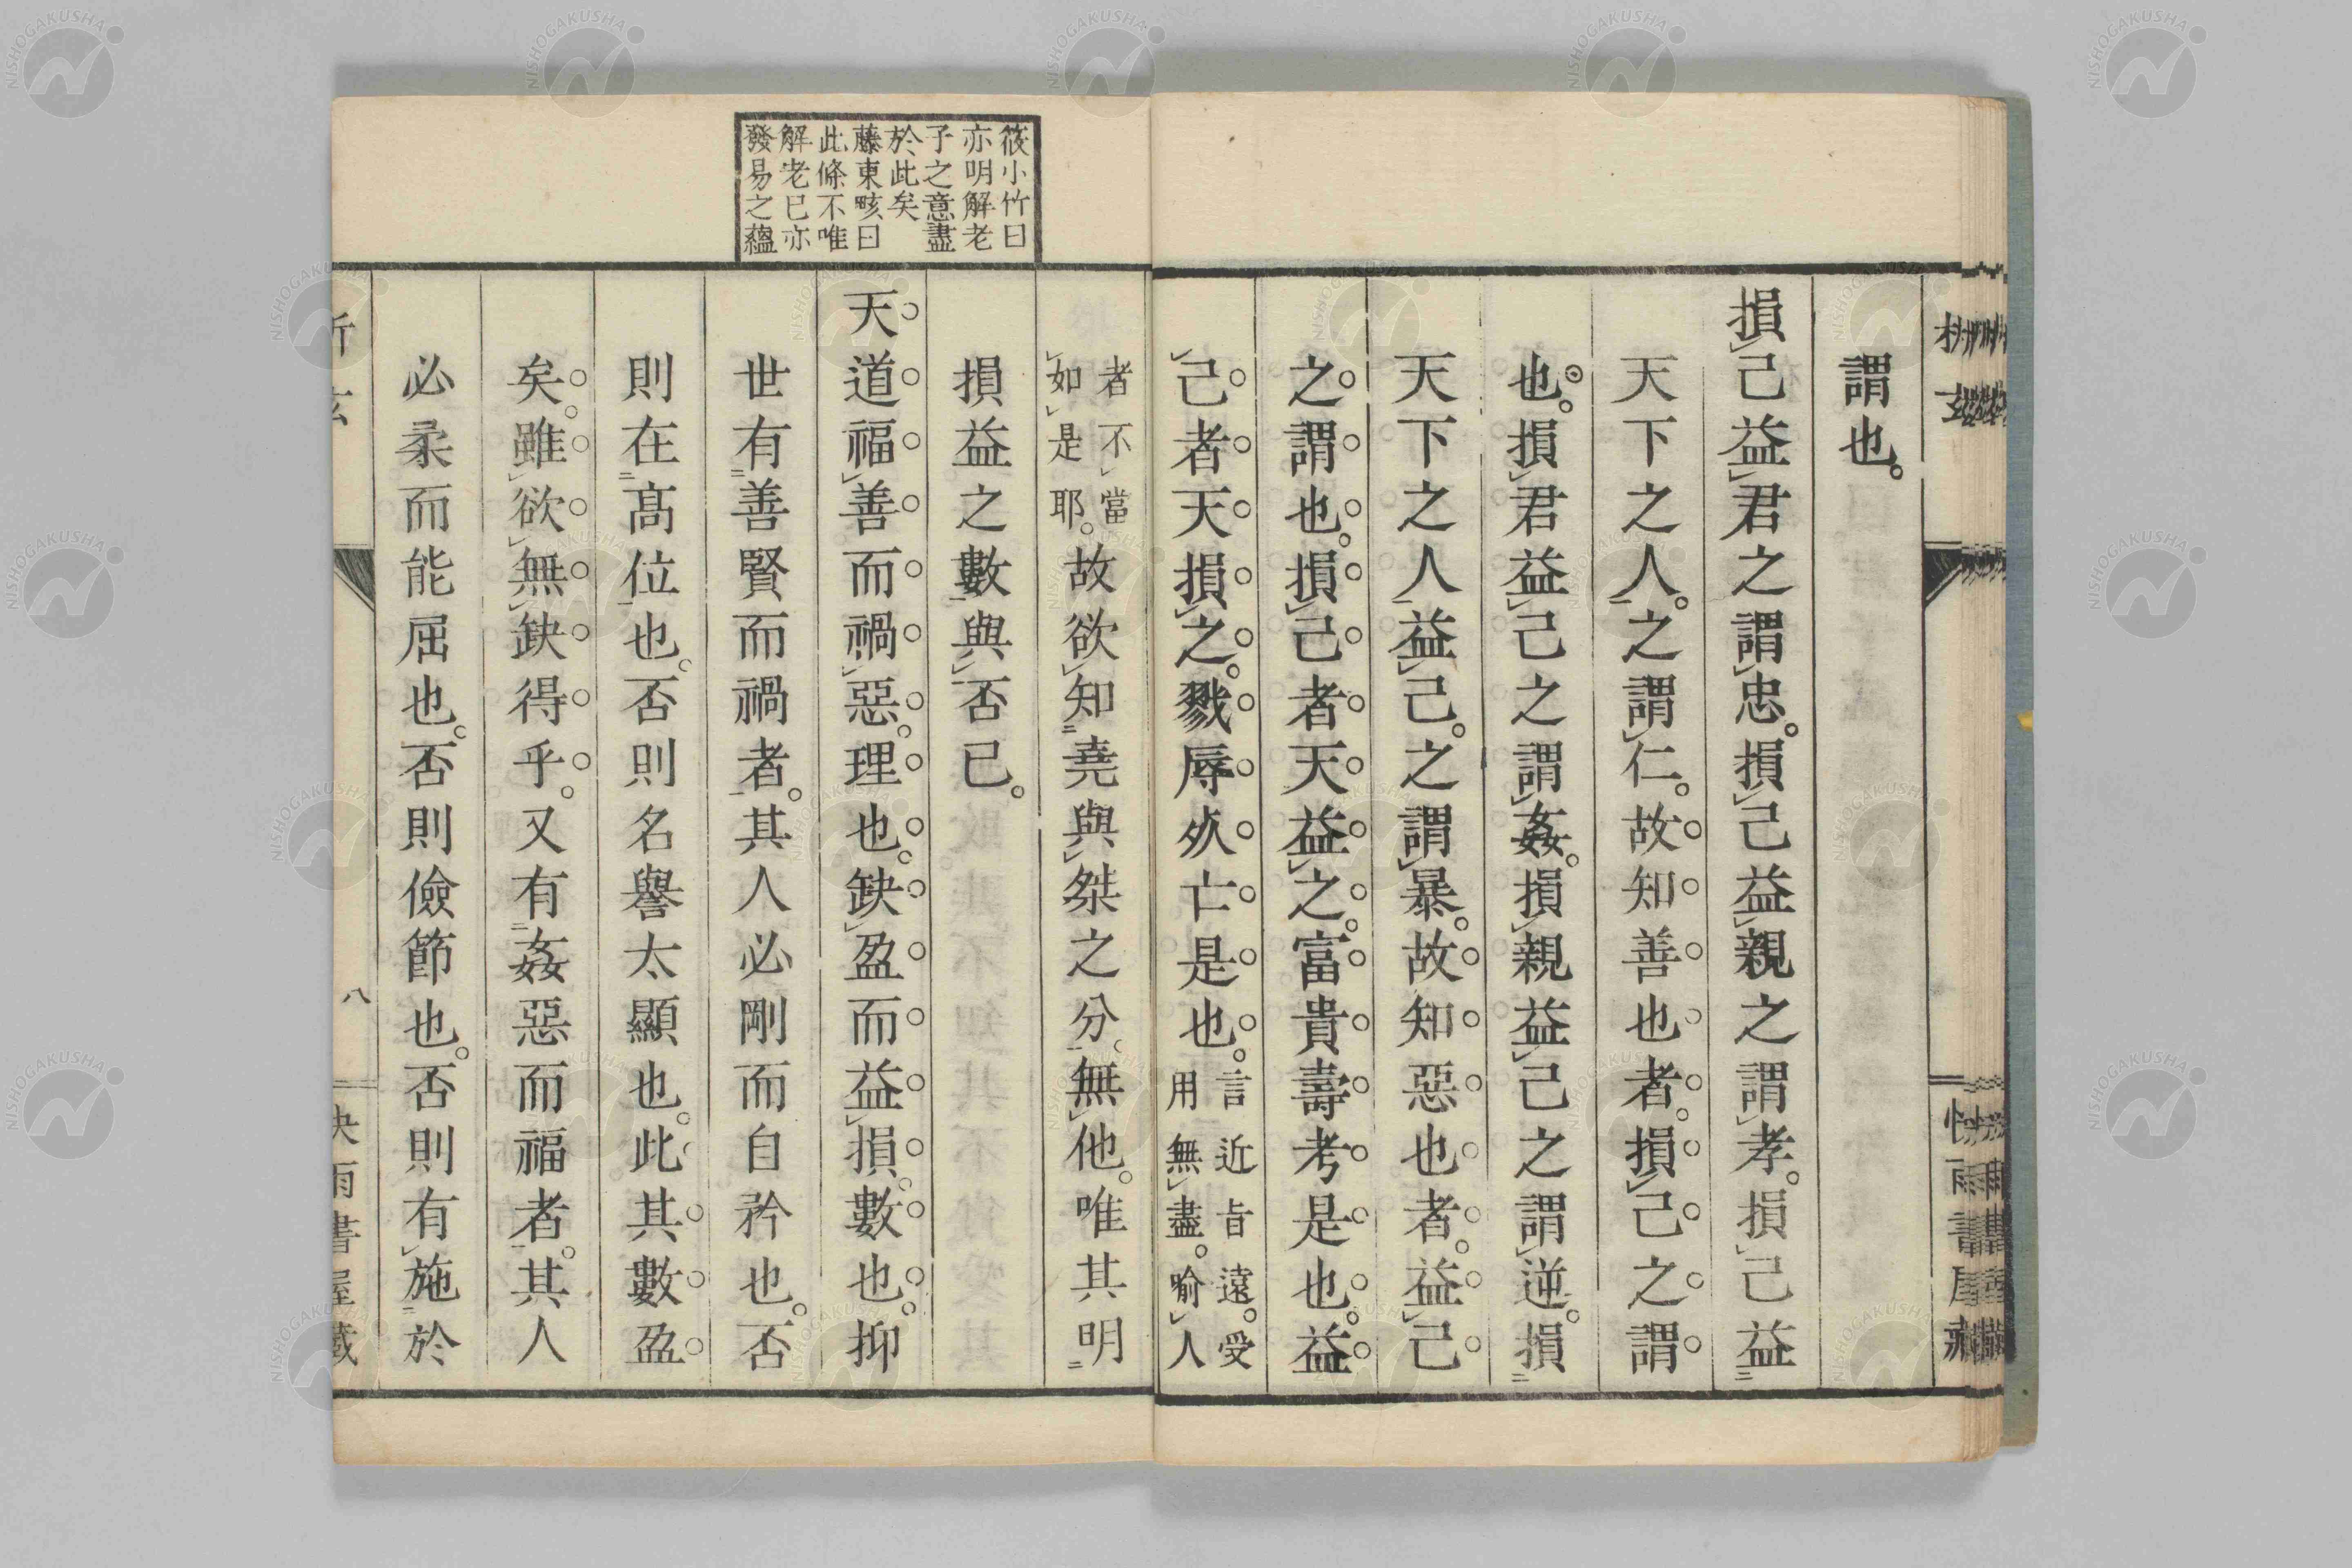 謂也。
損己益君之謂忠。損己益親之謂孝。損己益
天下之人。之謂仁。故知善也者。損己之謂
也。損君益己之謂姦。損親益己之謂逆。損
天下之人益己。之謂暴。故知惡也者。益己
之謂也。損己者天益之。富貴壽考是也。益
己者天損之。戮辱殀亡是也。言近旨遠。受
用無盡。喻人
者不當
如是耶。故欲知堯與桀之分、無他。唯其明
損益之數與否已。
天道福善而禍惡。理也。缺盈而益損。數也。抑
世有善賢而禍者。其人必剛而自矜也。否
則在高位也。否則名譽太顯也。此其數盈
矣。雖欲無缺得乎。又有姦惡而福者。其人
必柔而能屈也。否則儉節也。否則有施於
筱小竹曰
亦明解老
子之意盡
於此矣
藤東畡曰
此條不唯
解老已亦
發易之蘊
八
NISHOGAKUSHA